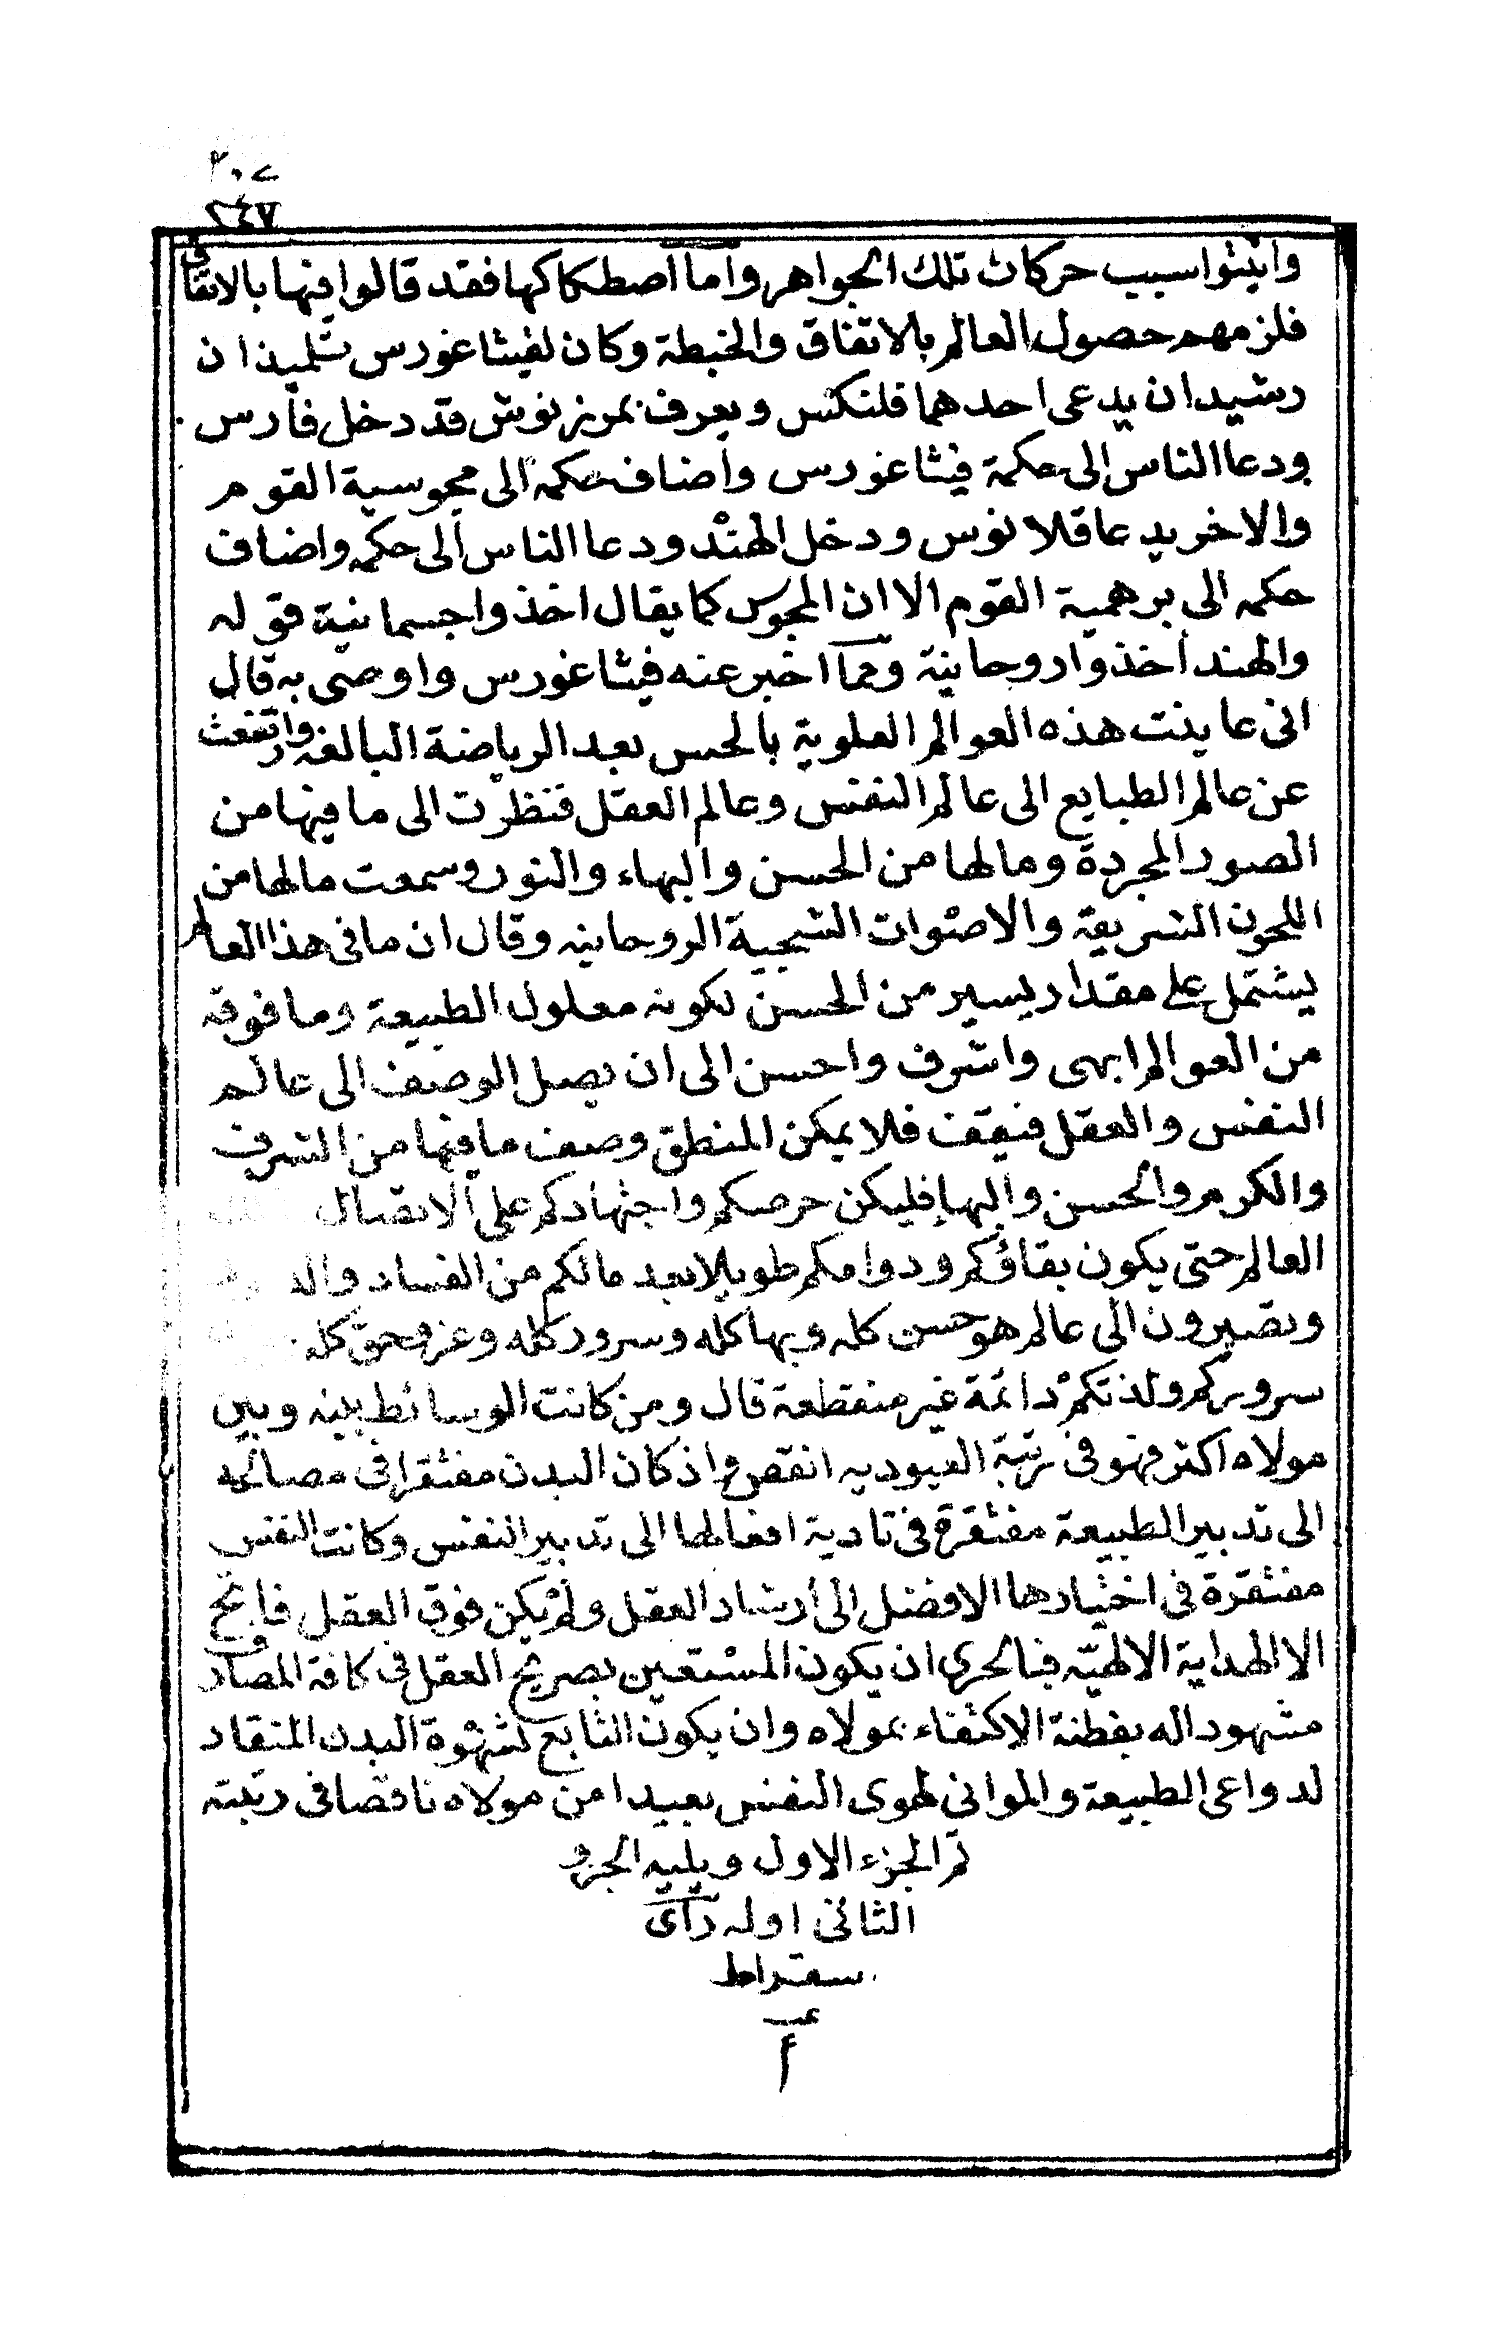 ٢٠٧
٢٤٧
واثبتوا سبب حركات تلك الجواهر واما اصطكاكها فقد قالوا فيها بالاتفاق
فلزمهم حصول العالم بالاتفاق والخبطة وكان لفيثاغورس تلميذان
رشيدان يدعى احدهما فلنكس ويعرف بمرزنوش قد دخل فارس
ودعا الناس الى حكمة فيثاغورس واضاف حكمه الى مجوسية القوم
والاخر يدعا قلانوس ودخل الهند ودعا الناس الى حكمه واضاف
حكمه الى برهمية القوم الا ان المجوس كما يقال اخذوا جسمانية قوله
والهند اخذوا روحانية ومما اخبر عنه فيثاغورس واوصى به قال
انى عاينت هذه العوالم العلوية بالحس بعد الرياضة البالغة وارتفعت
عن عالم الطبايع الى عالم النفس وعالم العقل فنظرت الى ما فيها من
الصور المجردة وما لها من الحسن والبهاء والنور وسمعت ما لها من
اللحون الشريفة والاصوات الشجية الروحانيه وقال ان ما فى هذا العالم
يشتمل على مقدار يسير من الحسن لكونه معلول الطبيعة وما فوقه
من العوالم ابهى واشرف واحسن الى ان يصل الوصف الى عالم
النفس والعقل فيقف فلا يمكن المنطق وصف ما فيها من الشرف
والكرم والحسن والبها فليكن حرصكم واجتهادكم على الاتصال
العالم حتى يكون بقاؤكم ودوامكم طويلا بعد ما لكم من الفساد
وتصيرون الى عالم هو حسن كله وبها كله وسرور كله وعز وحق كله
سروركم ولذتكم دائمة غير منقطعة قال ومن كانت الوسائط بينه وبين
مولاه اكثر فهو فى رتبة العبوديه انقص واذ كان البدن مفتقرا فى مصالحه
الى تدبير الطبيعة مفتقرة فى تادية افعالها الى تدبير النفس وكانت النفس
مفتقرة فى اختيارها الافضل الى ارشاد العقل ولم يكن فوق العقل فاتح
الا الهداية الالهيّه فبالحرى ان يكون المستعين بصريح العقل فى كافة المصارف
مشهودا له بفطنة الاكتفاء بمولاه وان يكون التابع لشهوة البدن المنقاد
لدواعى الطبيعة والموانى لهوى النفس بعيدا من مولاه ناقصا فى رتبته
تم الجزء الاول ويليه الجزو
الثانى اوله رأى
سقراط